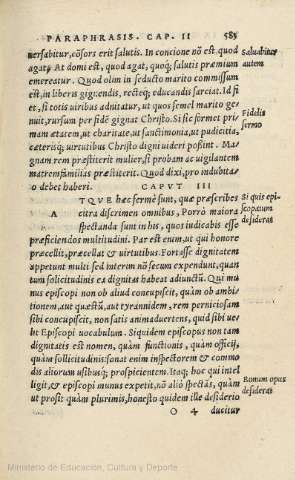 PARAPHRASIS. CAP. II 585
uersabitur, cōsors erit salutis. In concione nō est, quod
agat, At domi est, quod agat, quoq; salutis præmium
emereatur. Quod olim in seducto marito commissum
est, in liberis gignēdis, recteq; educādis sarciat. Id fi
et, si totis uiribus adnitatur, ut quos semel marito ge
nuit, rursum per fidē gignat Christo. Si sic formet pri-
mam ætatem, ut charitate, ut sanctimonia, ut pudicitia,
cæterisq; uirtutibus Christo digni uideri possint. Ma-
gnam rem præstiterit mulier, si probam ac uigilantem
matremfamiliâs præstiterit. Quod dixi, pro indubita
to debet haberi. CAPVT III
ATQVE hæc fermè sunt, quæ præscribes
citra discrimen omnibus, Porrò maiora
spectanda sunt in his, quos iudicabis esse
præficiendos multitudini. Par est enim, ut qui honore
præcellit, præcellat & uirtutibus. Fortasse dignitatem
appetunt multi sed interim nō secum expendunt, quan
tum solicitudinis ea dignitas habeat adiunctū. Qui mu
nus episcopi non ob aliud concupiscit, quàm ob ambiti
onem, aut quæstū, aut tyrannidem, rem perniciosam
sibi concupiscit, non satis animaduertens, quid sibi ue-
lit Episcopi uocabulum. Siquidem episcopus non tam
dignitatis est nomen, quàm functionis, quàm officij,
quàm sollicitudinis: sonat enim inspectorem & commo
dis aliorum usibusq; prospicientem. Itaq; hoc qui intel
ligit, & episcopi munus expetit, nō aliò spectās, quàm
ut prosit quàm plurimis, honesto quidem ille desiderio
O 4 ducitur
Saluabitur
autem
Fidelis
sermo
Si quis epi-
scopatum
desiderat
desiderat
Ministerio de Educación, Cultura y Deporte